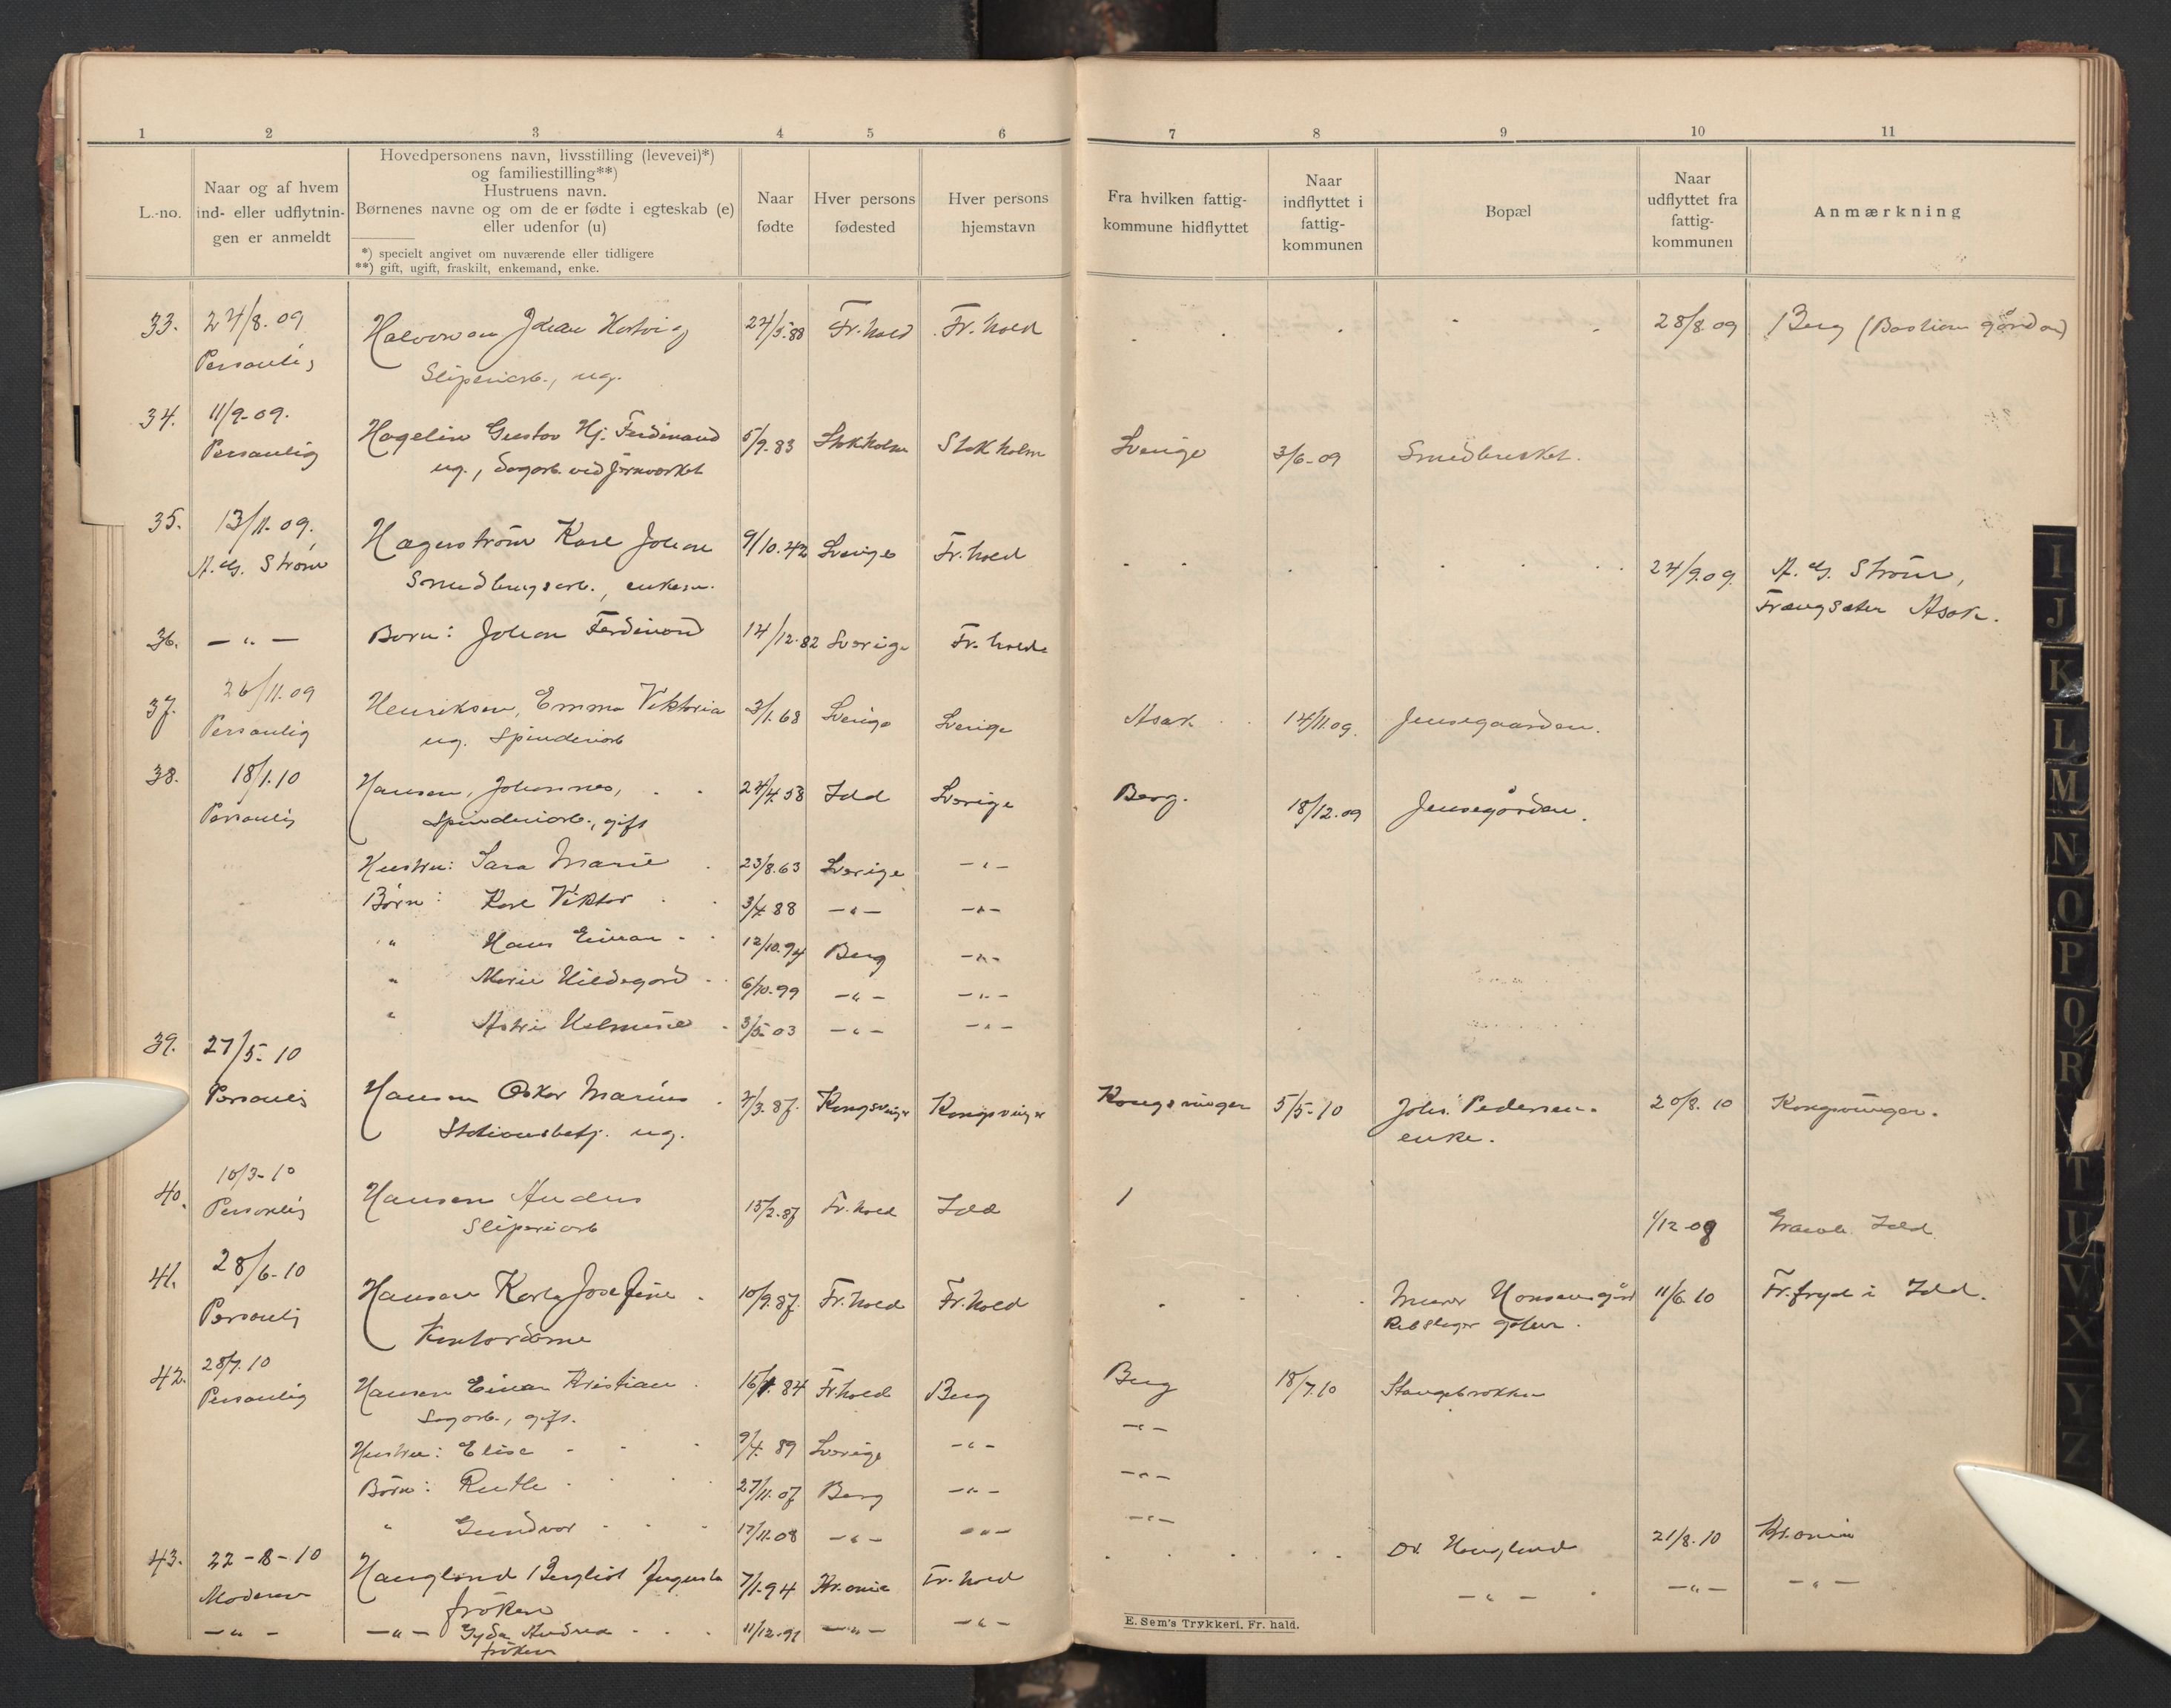 1 2 3 4 5 6 7 8 9 10 11
L.-no.
Naar og af hvem
ind- eller udflytnin-
gen er anmeldt
Hovedpersonens navn, livsstilling (levevei)*)
og familiestilling**)
Hustruens navn.
Børnenes navne og om de er fødte i egteskab (e)
eller udenfor (u)
*) specielt angivet om nuværende eller tidligere
**) gift, ugift, fraskilt, enkemand, enke.
Naar
fødte
Hver persons
fødested
Hver persons
hjemstavn
Fra hvilken fattig-
kommune hidflyttet
Naar
indflyttet i
fattig-
kommunen
Bopæl
Naar
udflyttet fra
fattig-
kommunen
Anmærkning
33. 24/8.09 Halvorsen Johan Hartvig 24/5.88 Fr.hald Fr.hald 28/8.09 Berg (Bastian gården)
Personlig Sliperiarb., ug.
34. 11/9-09. Hagelin Gustav Hj. Ferdinand 5/9.83 Stokholm Stokholm Sverige 3/6-09 Smedbrukket.
Personlig ug., Dagarb. ved Jernverket
35. 13/11.09. Hagerström Karl Johan 9/10.42 Sverige Fr.hald 24/9.09. A. G. Strøm,
A. G. Strøm Smedbrugsarb., enkem. Asak.
36. — " — Barn: Johan Ferdinand 14/12.82 Sverige Fr.hald
37. 26/11.09 Henriksen, Emma Viktoria 3/1.68 Sverige Sverige Asak 14/11.09. Jensegaarden.
Personlig ug. Spinderiarb
38. 18/1.10 Hansen, Johannes, 24/4.58 Idd Sverige Berg. 18/12.09 Jensegården.
Personlig Spinderiarb., gift
Hustru: Sara Marie 23/8.63 Sverige — " —
Børn: Karl Viktor 3/4.88 — " — — " —
" Hans Einar 12/10.94 Berg — " —
" Marie Hildegard 6/10.99 — " — — " —
" Helmine 3/5-03 — " — — " —
39. 27/5-10
Personlig Hansen Oskar Marius /3.87. Kongsvinger Kongsvinger Kongsvinger 5/5-10 Johs. Pedersen 20/8.10 Kongsvinger.
Stationsbetj. ug. enke.
40. 10/3-10 Hansen Anders 15/2.87 Fr.hald Idd / 1/12-09 Idd.
Personlig Sliperiarb
41. 28/6-10 Hansen Karla Josefine 10/9.87. Fr.hald Fr.hald Murer Hansensgård 11/6.10 Fr.fryd i Idd.
Personlig Kontordame Rebslager gaten.
42. 28/7.10 Hansen Einar Kristian 16/1.84 Fr.hald Berg Berg 18/7.10 Stangebrokken
Personlig Dagarb., gift.
Hustru: Elise 9/4.89 Sverige — " — — " —
Børn: Ruth 27/11.07 Berg — " — — " —
" Gundvor 17/11.08 — " — — " — — " —
43. 22-8-10 Hauglund Bergliot Augusta 7/1.94 Kr.ania Fr.hald Dr. Hauglund 21/8.10 Kr.ania
Moderen frøken
— " — — " — Gyda Andrea 11/12.91 — " — — " — — " — — " — — " —
frøken
E. Sem's Trykkeri. Fr. hald.
I
J
K
L
M
N
O
P
Q
R
T
U
V
X
Y
Z